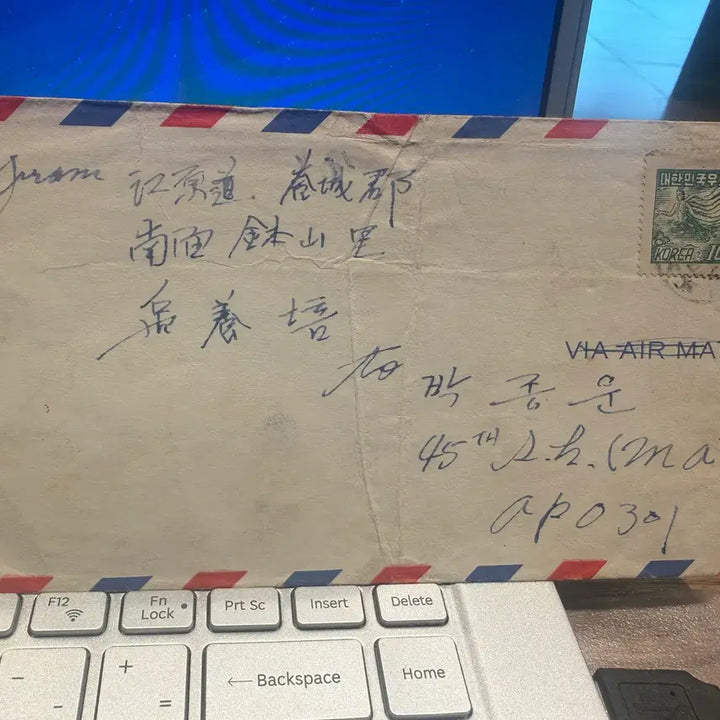 from 江原道. 春城郡
南面 鉢山里
養培
to 박종문
45TH S.h. (Ma
APO 301
VIA AIR MA
대한민국우
KOREA 10
F12
Fn Lock
Prt Sc
Insert
Delete
- -
+ =
← Backspace
Home